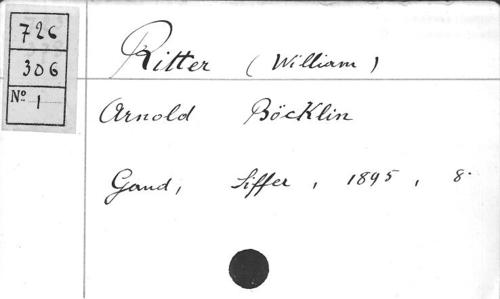 726
306
Nº 1
Ritter (William)
Arnold Böcklin
Gand, Siffer, 1895, 8º